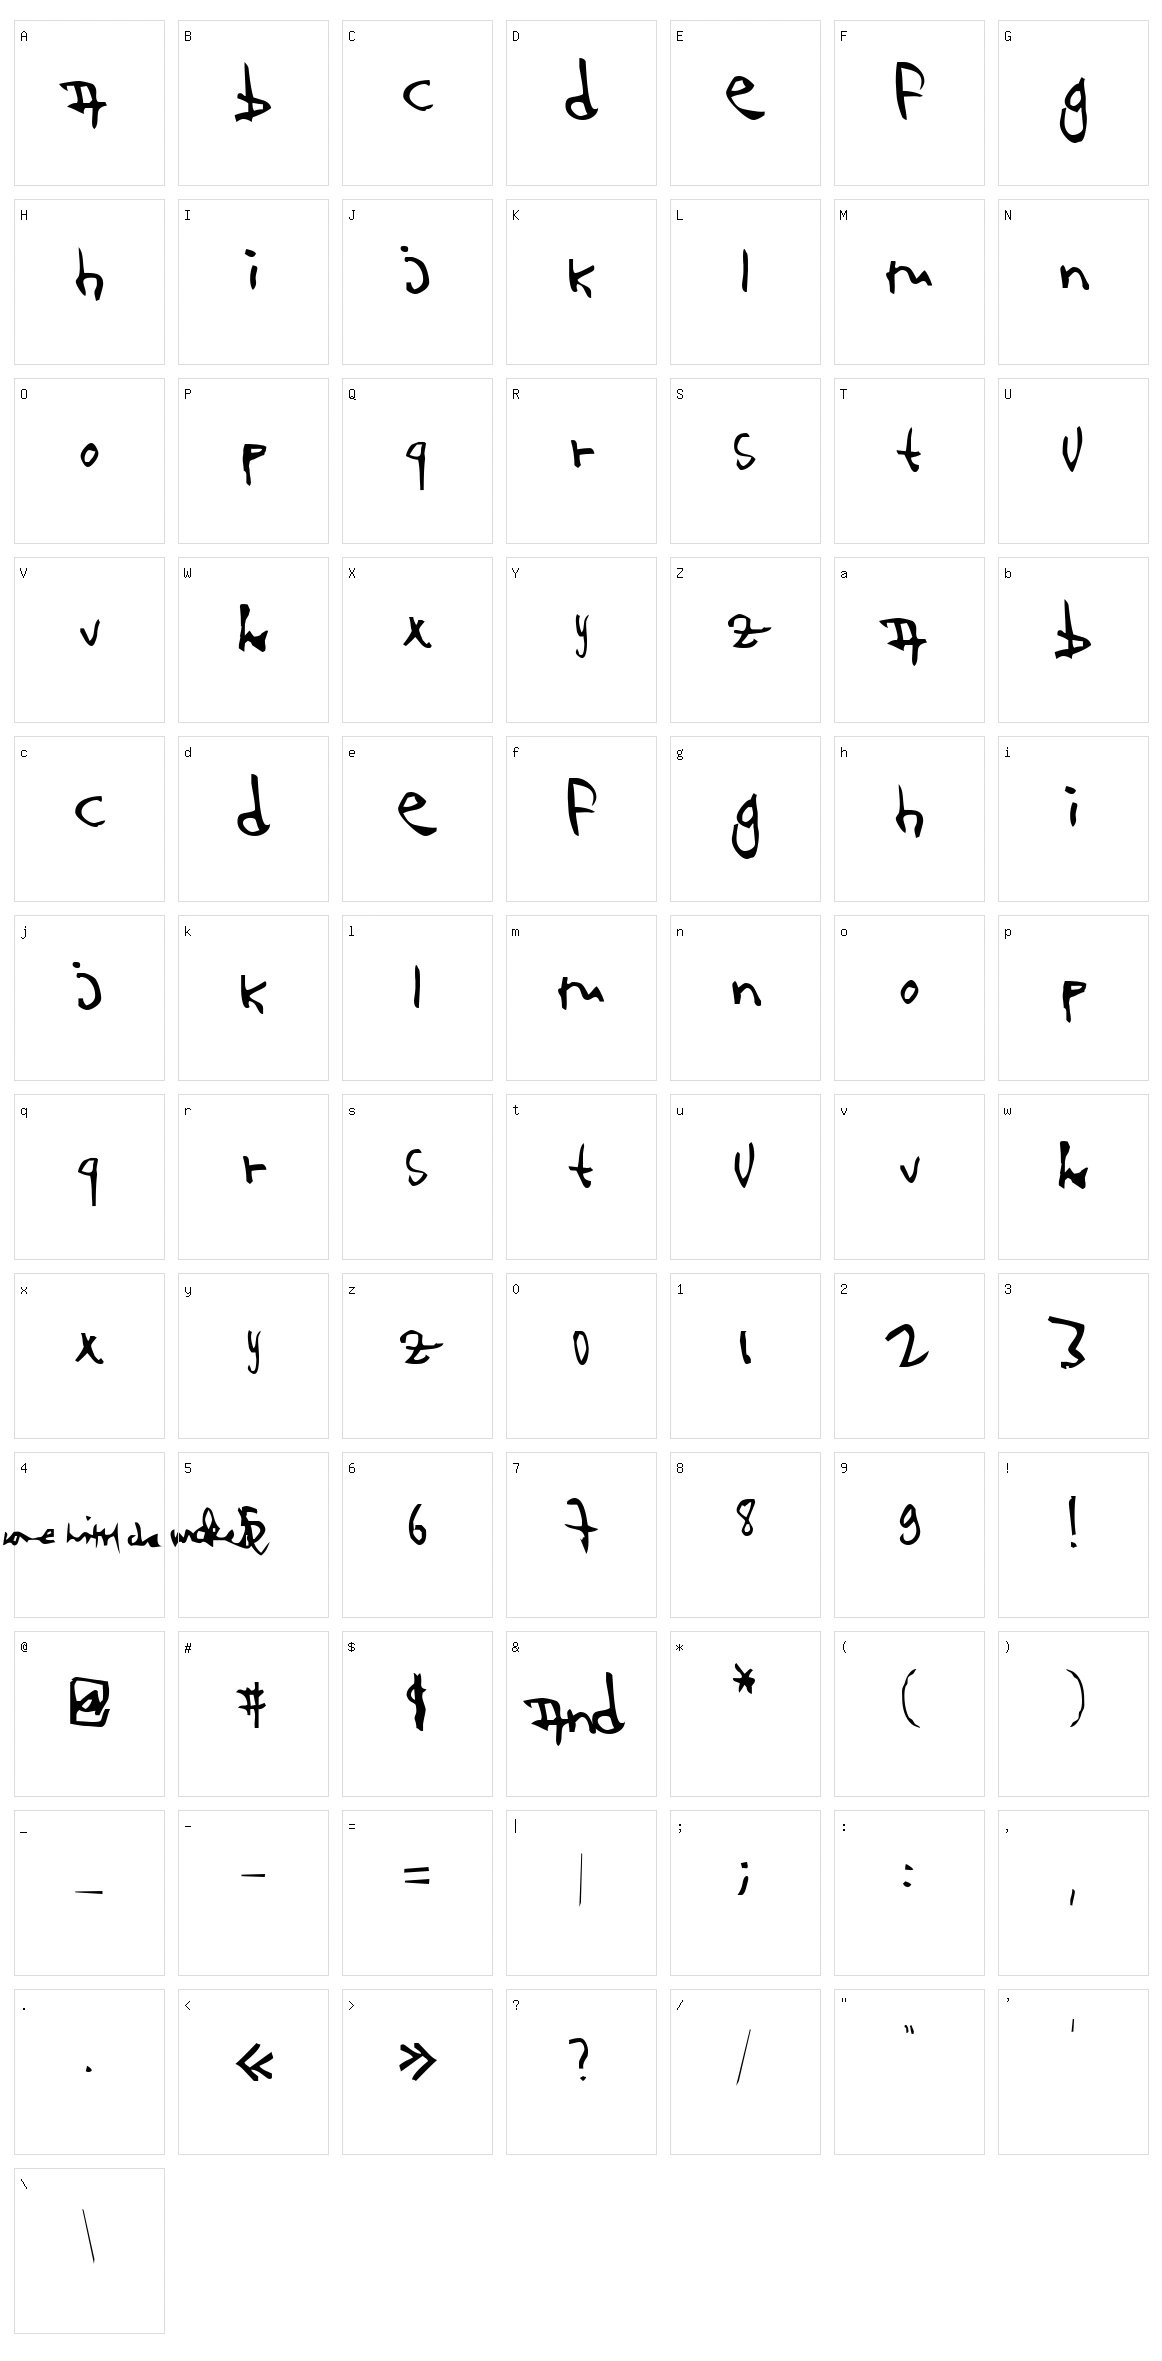 A B C D E F G
A b c d e F g
H I J K L M N
h i j k l m n
O P Q R S T U
o p q r s t U
V W X Y Z a b
v w x y z A b
c d e f g h i
c d e F g h i
j k l m n o p
j k l m n o p
q r s t u v w
q r s t U v w
x y z 0 1 2 3
x y z 0 1 2 3
4 5 6 7 8 9 !
5 6 7 8 9 !
@ # $ & * ( )
@ # $ And * ( )
_ - = | ; : ,
_ - = | ; : ,
. < > ? / " '
. « » ? / " '
\
\